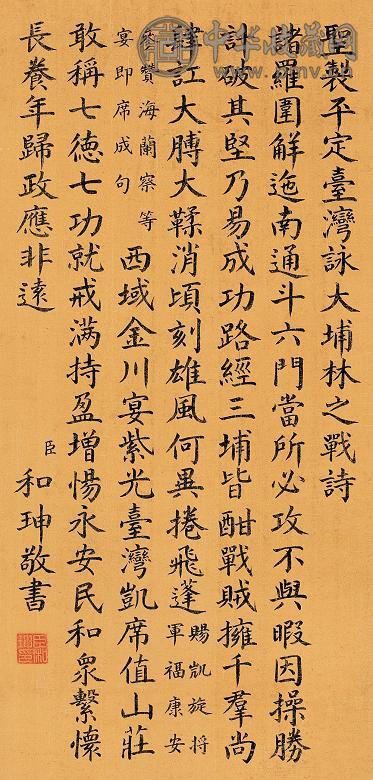 聖製平定臺灣詠大埔林之戰詩
諸羅圍解迤南通斗六門當所必攻不與暇因操勝
計破其堅乃易成功路經三埔皆酣戰賊擁千羣尚
訌大膊大鞣消頃刻雄風何異捲飛蓬
賜凱旋將
軍福康安
參贊海蘭察等
宴即席成句
西域金川宴紫光臺灣凱席值山莊
敢稱七德七功就戒滿持盈增惕永安民和衆繫懷
長養年歸政應非遠
臣和珅敬書